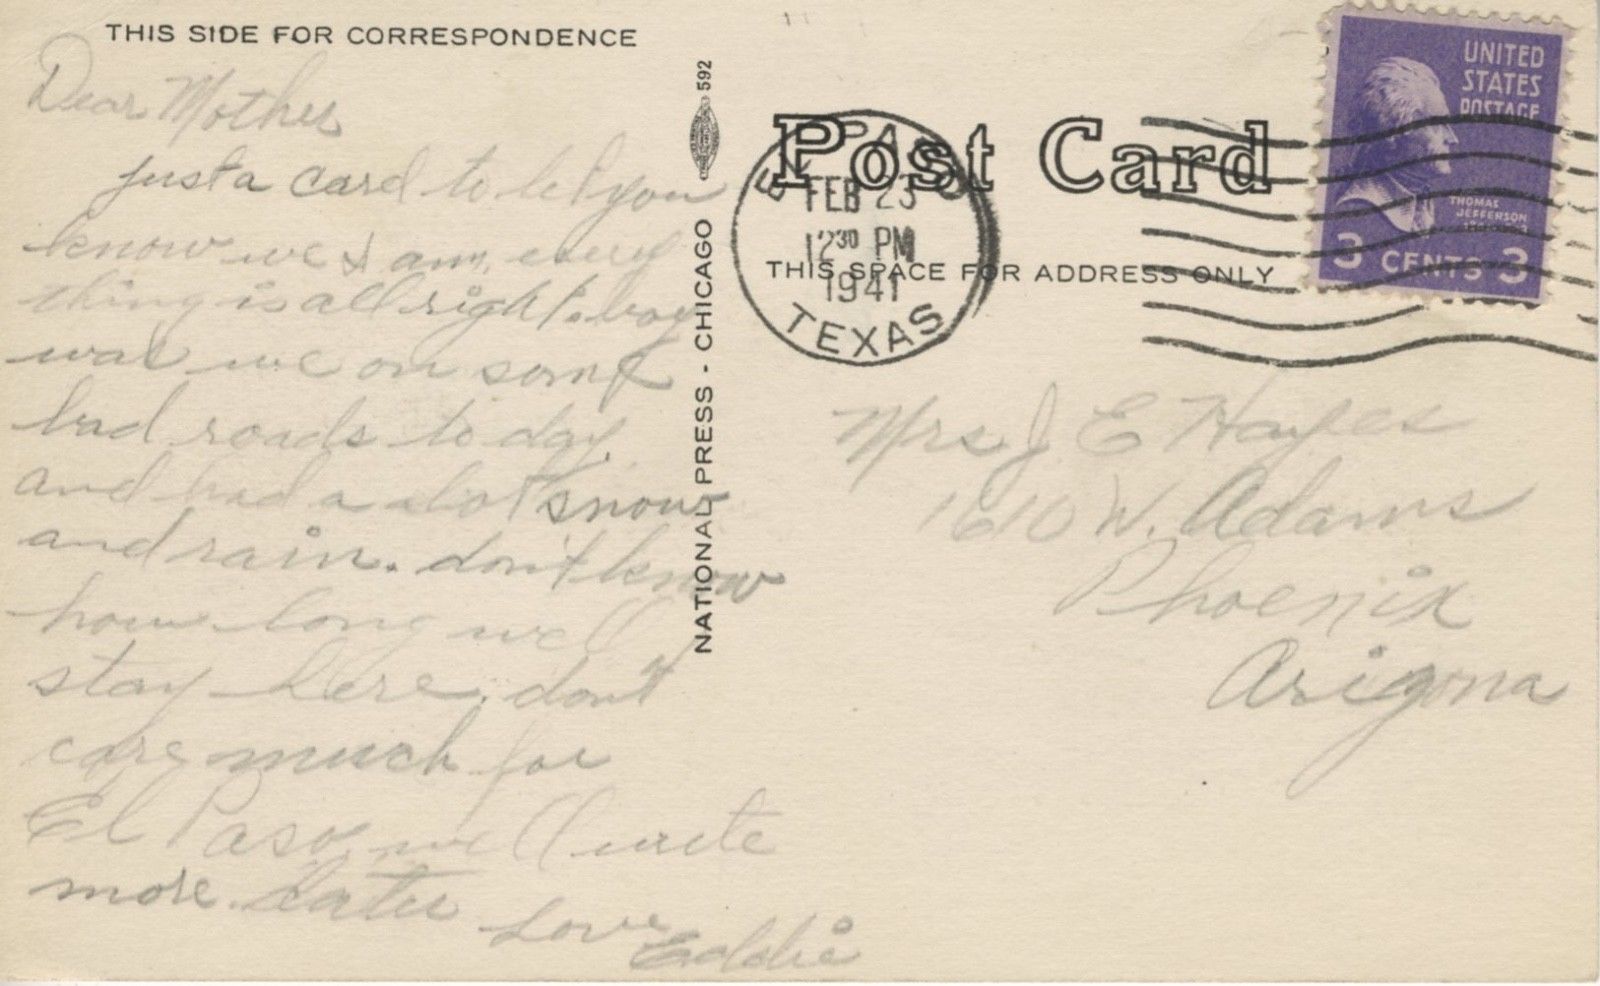 THIS SIDE FOR CORRESPONDENCE
Dear Mother
just a card to let you
know we & am, every
thing is all right. boy
was we on some
bad roads to day,
and had a alot snow
and rain. don't know
how long we'll
stay here, don't
care much for
El Paso, we'll write
more later
Love Eddie
592
NATIONAL PRESS - CHICAGO
Post Card
THIS SPACE FOR ADDRESS ONLY
EL PASO
FEB 23
12 30 PM
1941
TEXAS
UNITED
STATES
POSTAGE
THOMAS
JEFFERSON
3 CENTS 3
Mrs J E Hayes
1610 W. Adams
Phoenix
Arizona